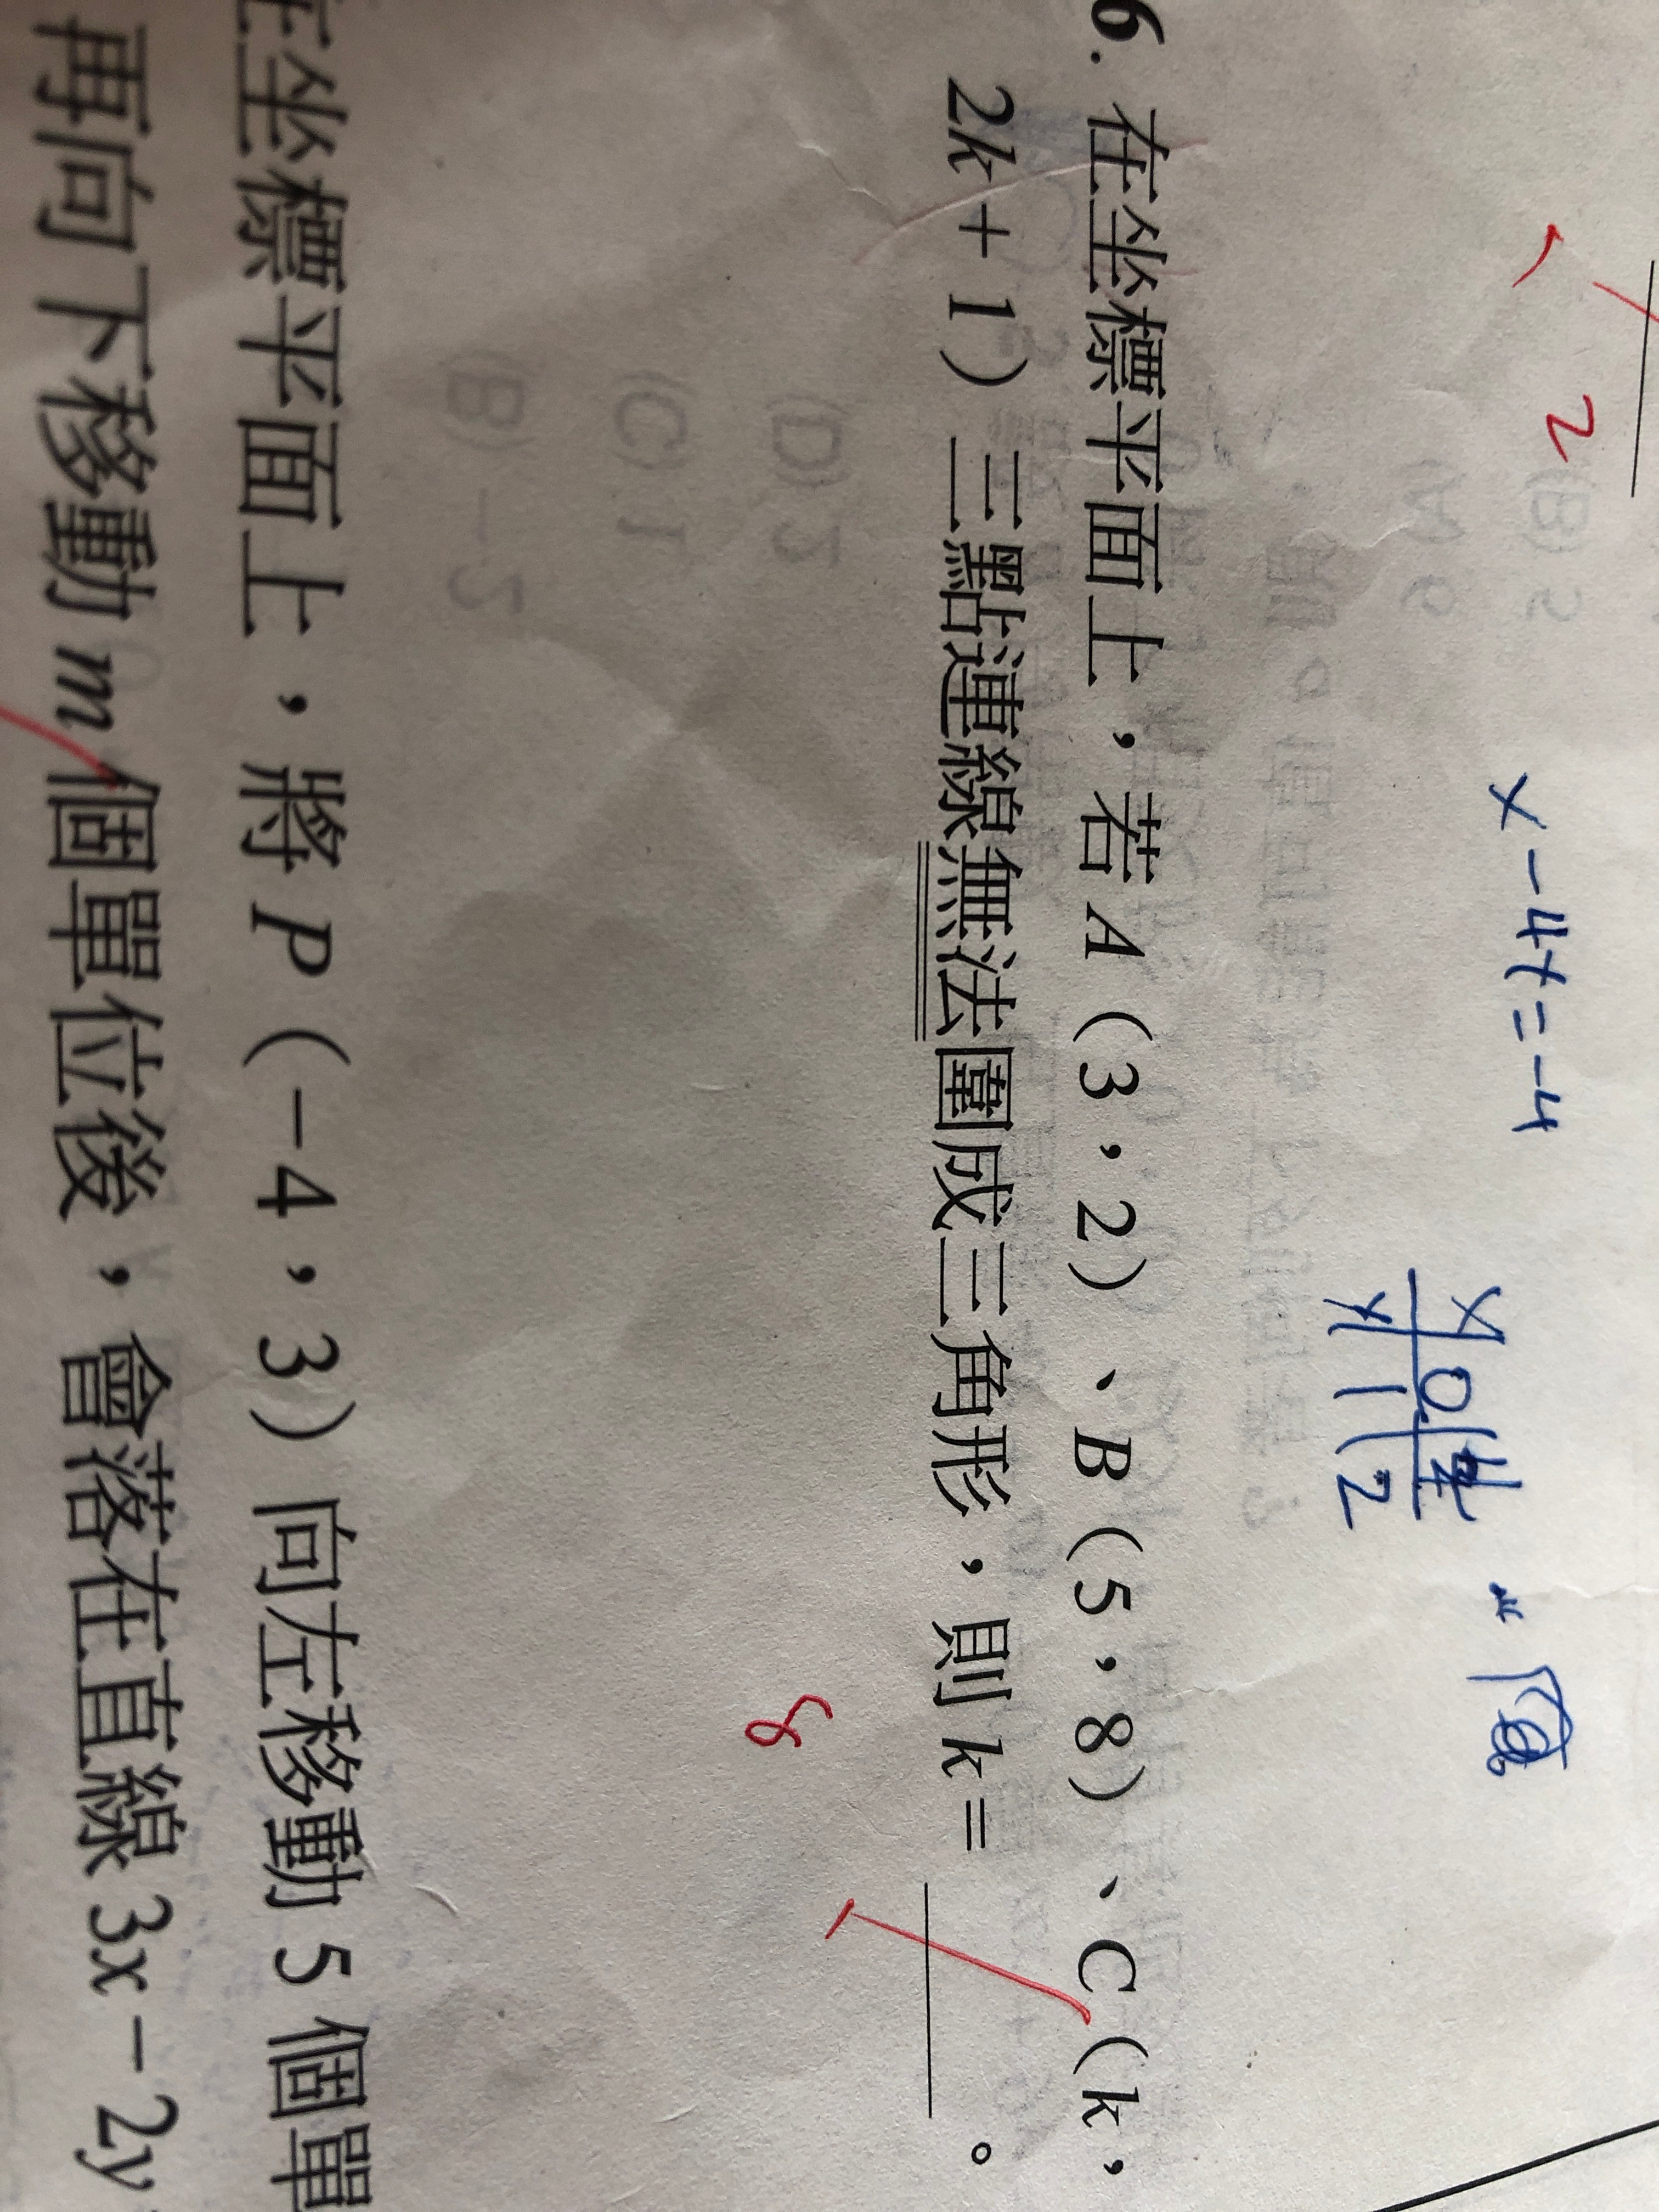 2
x-4y=-4
x 0
y 1 2
6. 在坐標平面上，若 A（3，2）、B（5，8）、C（k，
2k＋1）三點連線無法圍成三角形，則 k＝＿＿＿。
8
在坐標平面上，將 P（－4，3）向左移動 5 個單
再向下移動 m 個單位後，會落在直線 3x－2y